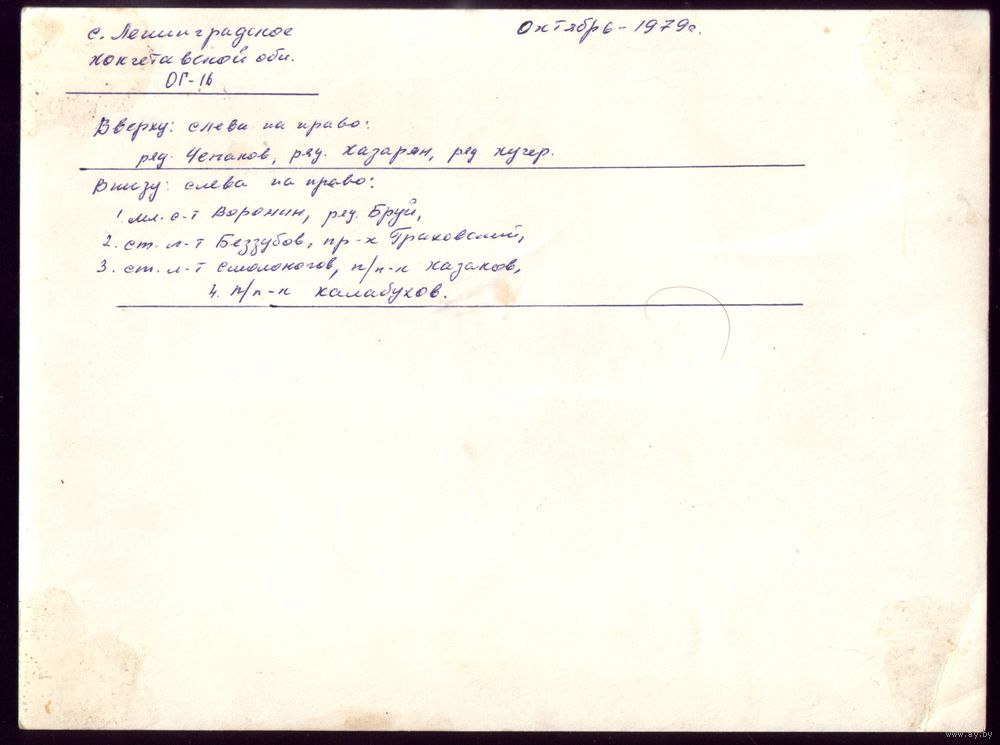 с. Ленинградское
Октябрь - 1979г.
Кокчетавской обл.
ОГ-16
Вверху: слева на право:
ряд. Чепаков, ряд. Казарян, ряд. Кучер.
Внизу: слева на право:
1. мл. с-т Воронин, ряд. Бруй,
2. ст. л-т Беззубов, пр-к Граковский,
3. ст. л-т Смолокогов, п/п-к Казаков,
4. п/п-к Калабухов.
www.ay.by